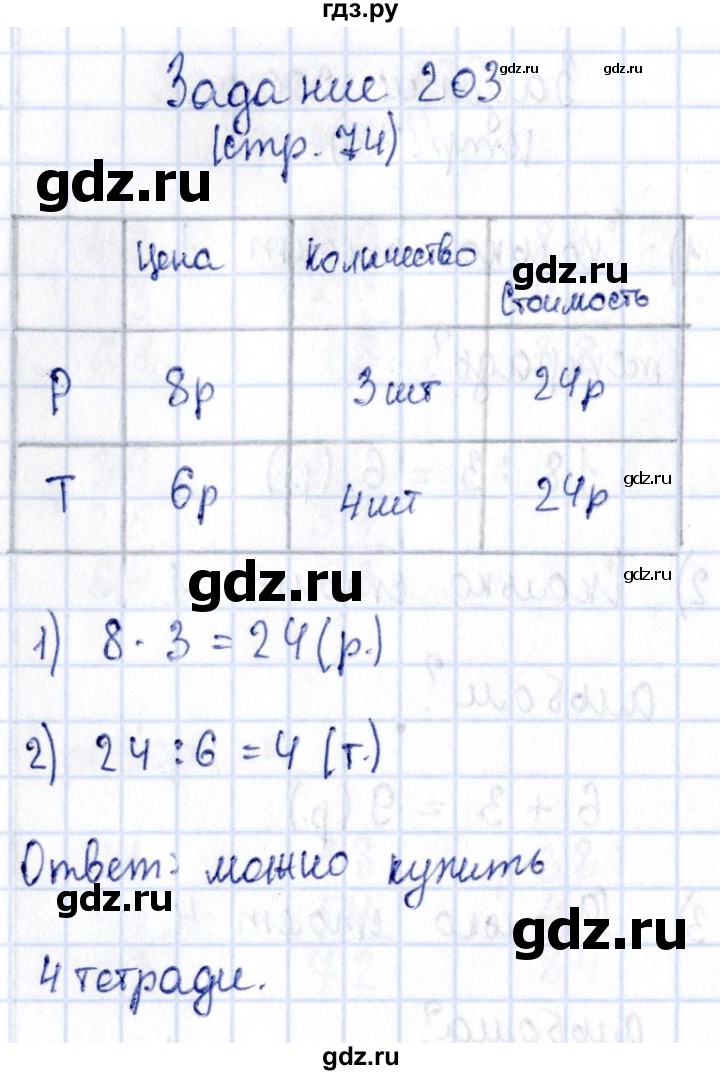 гдз.ру
Задание 203
gdz.ru gdz.ru
(стр. 74)
gdz.ru
Цена Количество Стоимость
gdz.ru
Р 8р 3 шт 24р
Т 6р 4 шт 24р
gdz.ru
gdz.ru gdz.ru
1) 8 · 3 = 24 (р.)
2) 24 : 6 = 4 (т.)
Ответ: можно купить
gdz.ru gdz.ru
4 тетради.
gdz.ru